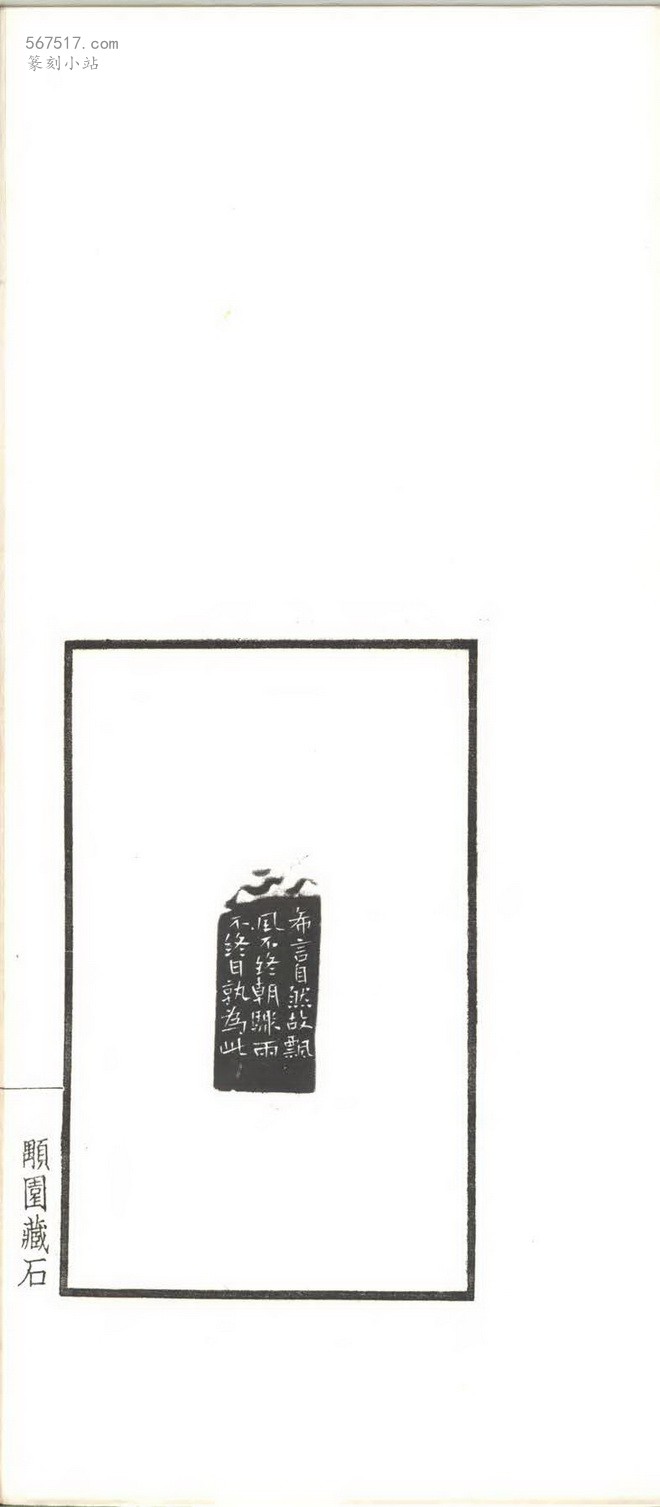 567517.com
篆刻小站
希言自然故飄
風不終朝驟雨
不終日孰為此
顒園藏石